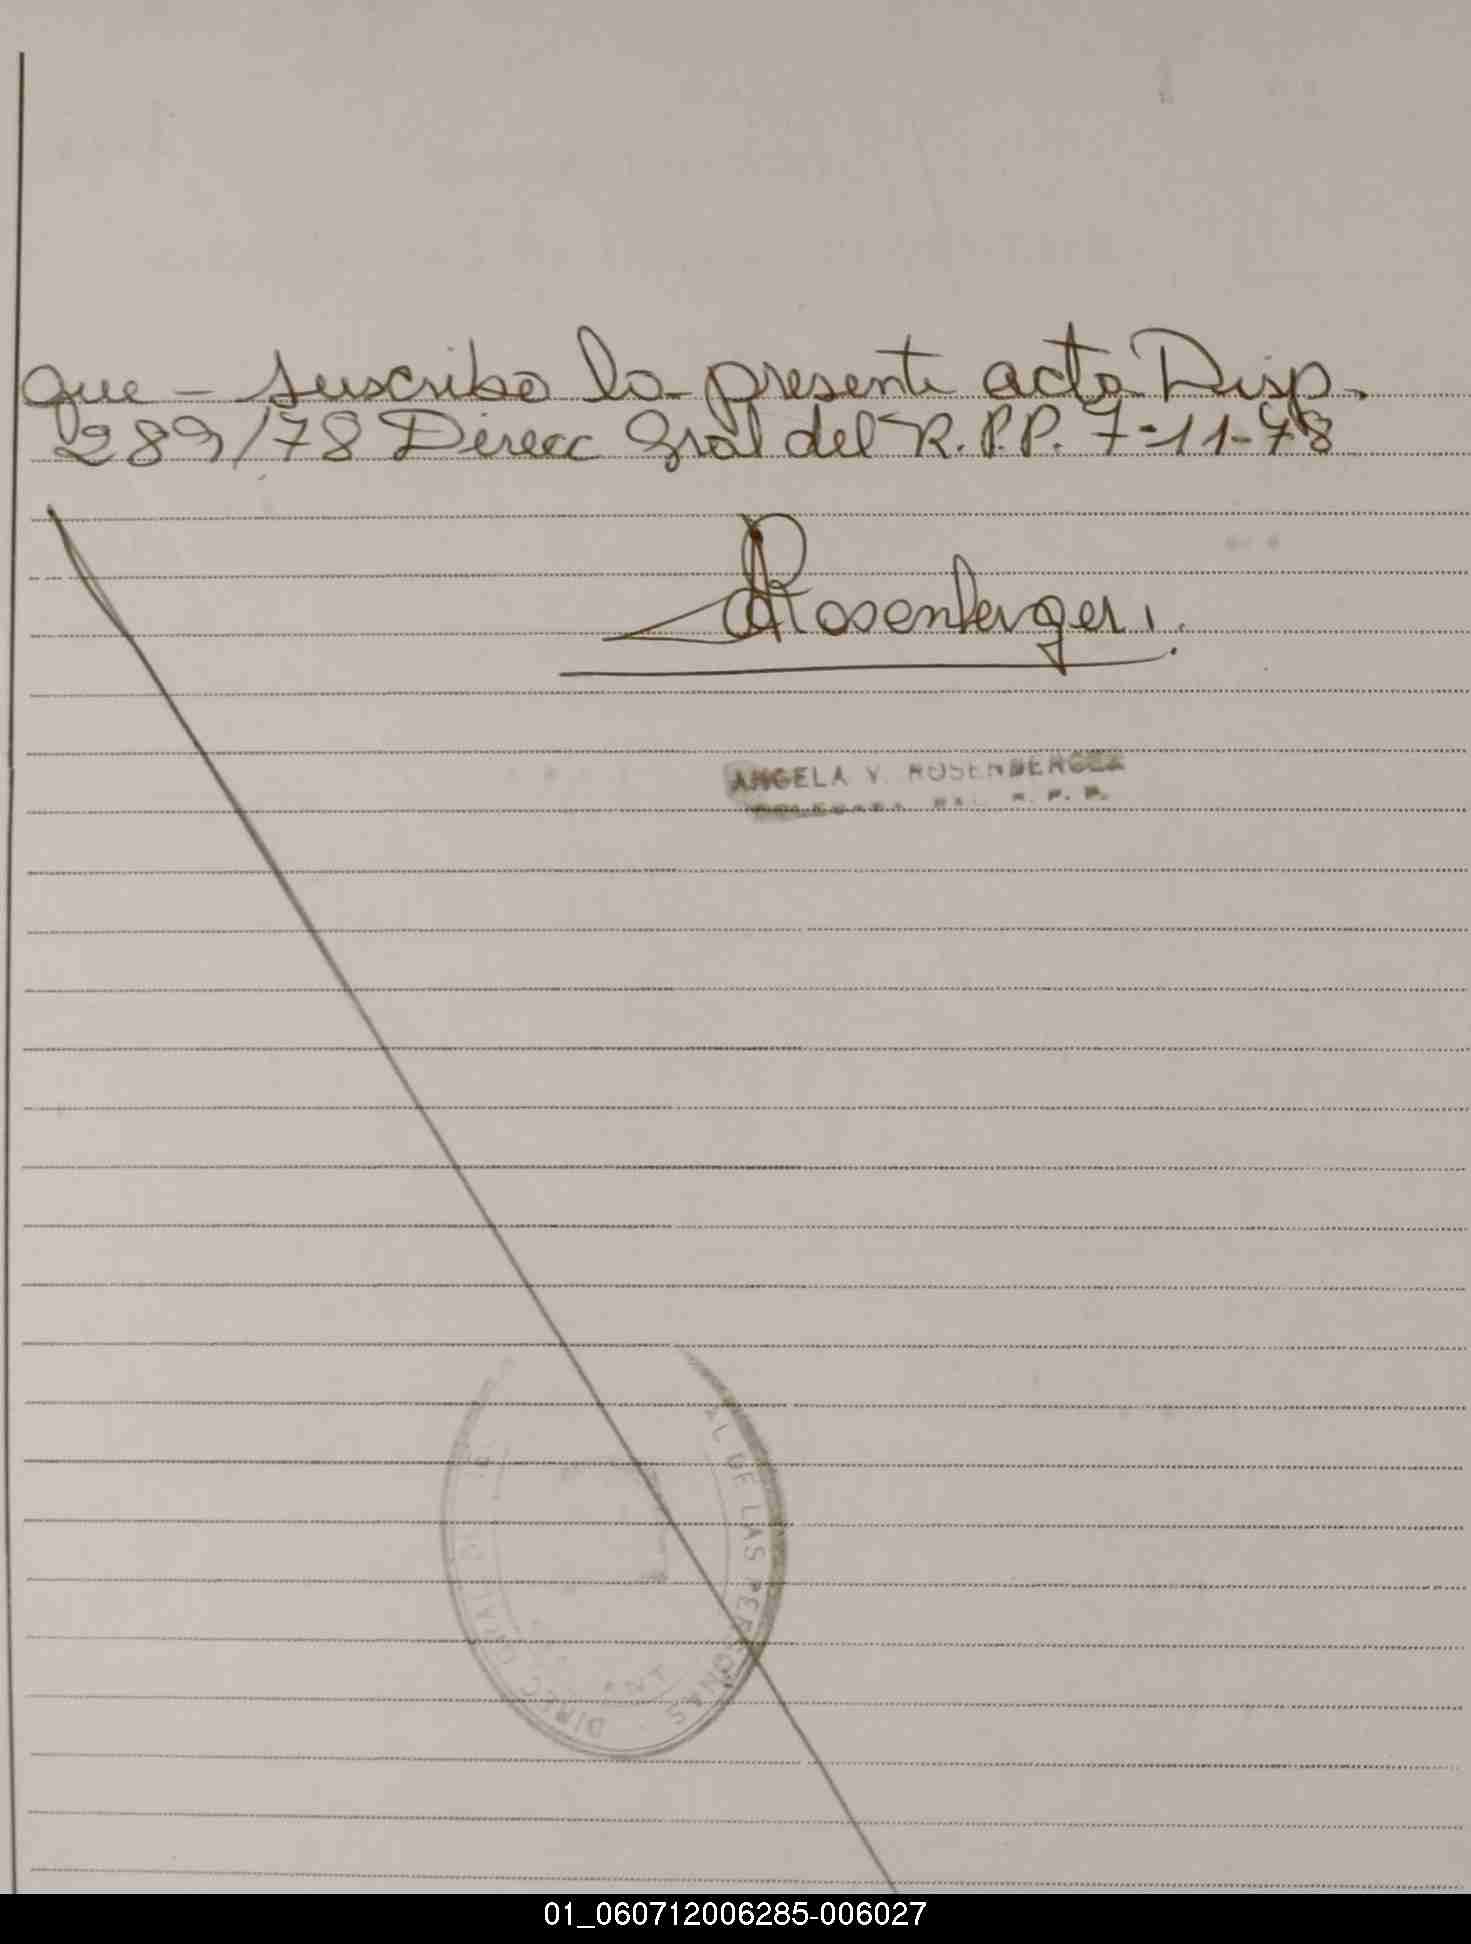 que - suscribo la presente acta Disp.
289/78 Direcc Gral del R.P.P. 7-11-78
ARosenberger.
ANGELA V. ROSENBERGER
DELEGADA DEL R. P. P.
DIREC GRAL DE
AL DE LAS PERSONAS
01_060712006285-006027